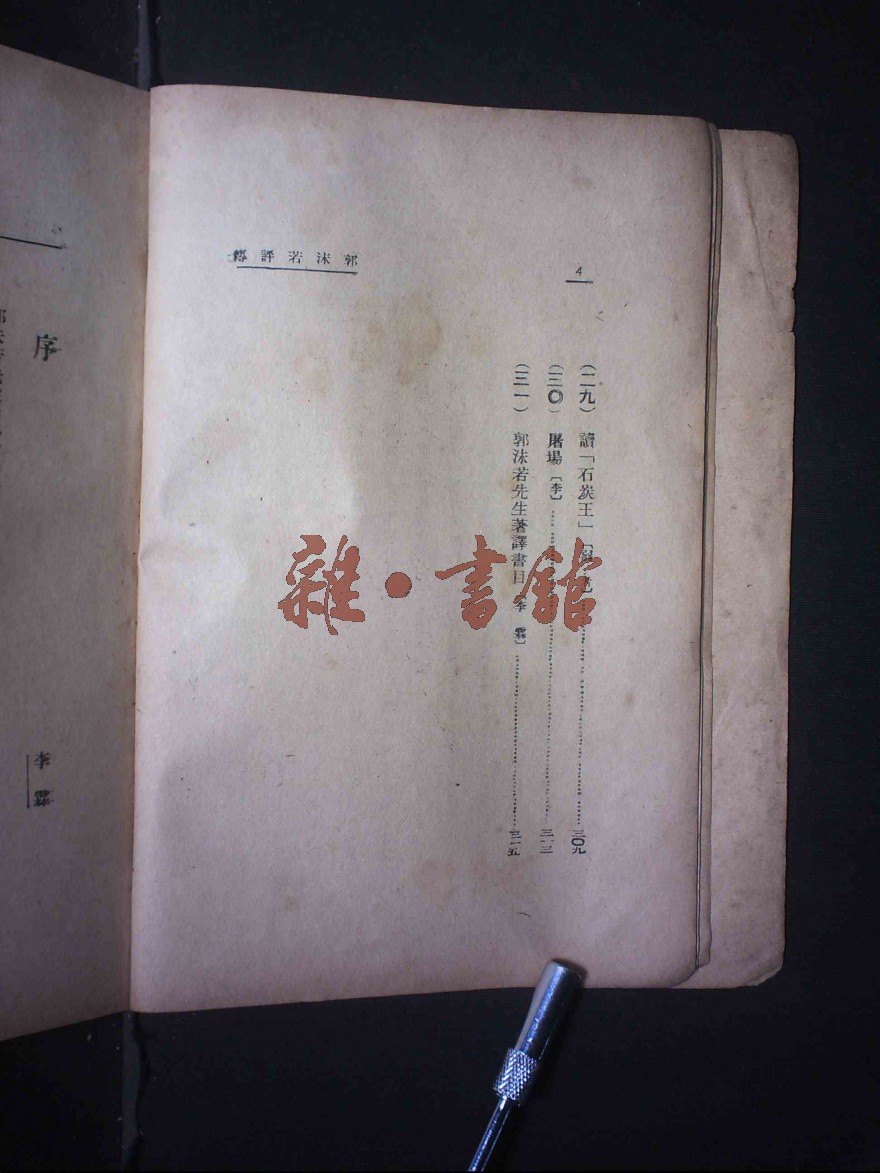 郭沫若評傳
4
(二九) 讀「石炭王」
(三〇) 屠場 〔李〕……三一三
(三一) 郭沫若先生著譯書目〔李霖〕……三一五
三〇九
序
李霖
雜·書館